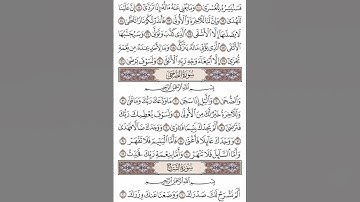 فَسَنُيَسِّرُهُۥ لِلْعُسْرَىٰ ۝ وَمَا يُغْنِى عَنْهُ مَالُهُۥٓ إِذَا تَرَدَّىٰٓ ۝ إِنَّ عَلَيْنَا
لَلْهُدَىٰ ۝ وَإِنَّ لَنَا لَلْءَاخِرَةَ وَٱلْأُولَىٰ ۝ فَأَنذَرْتُكُمْ نَارًا تَلَظَّىٰ ۝
لَا يَصْلَىٰهَآ إِلَّا ٱلْأَشْقَى ۝ ٱلَّذِى كَذَّبَ وَتَوَلَّىٰ ۝ وَسَيُجَنَّبُهَا
ٱلْأَتْقَى ۝ ٱلَّذِى يُؤْتِى مَالَهُۥ يَتَزَكَّىٰ ۝ وَمَا لِأَحَدٍ عِندَهُۥ مِن نِّعْمَةٍ
تُجْزَىٰٓ ۝ إِلَّا ٱبْتِغَآءَ وَجْهِ رَبِّهِ ٱلْأَعْلَىٰ ۝ وَلَسَوْفَ يَرْضَىٰ ۝
سُورَةُ الضُّحَىٰ
بِسْمِ ٱللَّهِ ٱلرَّحْمَٰنِ ٱلرَّحِيمِ
وَٱلضُّحَىٰ ۝ وَٱلَّيْلِ إِذَا سَجَىٰ ۝ مَا وَدَّعَكَ رَبُّكَ وَمَا قَلَىٰ ۝
وَلَلْءَاخِرَةُ خَيْرٌ لَّكَ مِنَ ٱلْأُولَىٰ ۝ وَلَسَوْفَ يُعْطِيكَ رَبُّكَ
فَتَرْضَىٰٓ ۝ أَلَمْ يَجِدْكَ يَتِيمًا فَـَٔاوَىٰ ۝ وَوَجَدَكَ ضَآلًّا فَهَدَىٰ
۝ وَوَجَدَكَ عَآئِلًا فَأَغْنَىٰ ۝ فَأَمَّا ٱلْيَتِيمَ فَلَا تَقْهَرْ ۝
وَأَمَّا ٱلسَّآئِلَ فَلَا تَنْهَرْ ۝ وَأَمَّا بِنِعْمَةِ رَبِّكَ فَحَدِّثْ ۝
سُورَةُ الشَّرْحِ
بِسْمِ ٱللَّهِ ٱلرَّحْمَٰنِ ٱلرَّحِيمِ
أَلَمْ نَشْرَحْ لَكَ صَدْرَكَ ۝ وَوَضَعْنَا عَنكَ وِزْرَكَ ۝